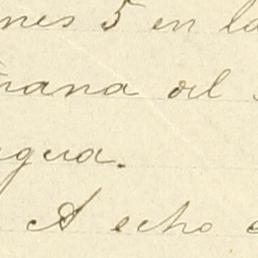 nes 5 en la
ñana del
gua.
A echo